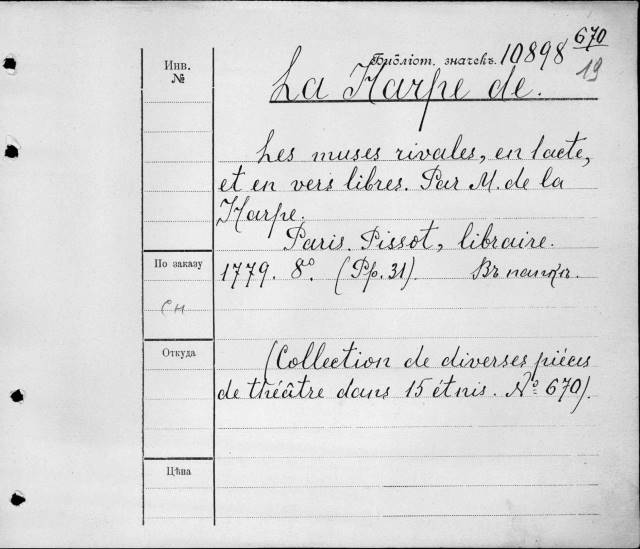 Инв.
№
Библіот. значекъ. 10898 670
19
La Harpe de.
Les muses rivales, en 1 acte,
et en vers libres. Par M. de la
Harpe.
Paris. Pissot, libraire.
По заказу
1779. 8º. (Pp. 31). Въ папкѣ.
СН
Откуда
(Collection de diverses piéces
de théâtre dans 15 étuis. Nº 670).
Цѣна